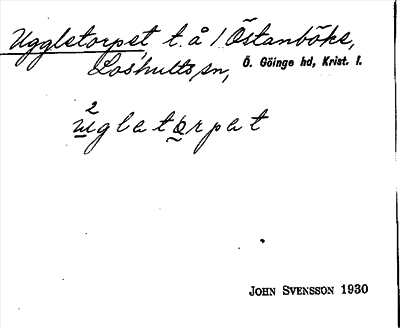 Uggletorpet, t. å 1 Östanböke,
Loshults sn, Ö. Göinge hd, Krist. l.
2
uglatorpat
JOHN SVENSSON 1930